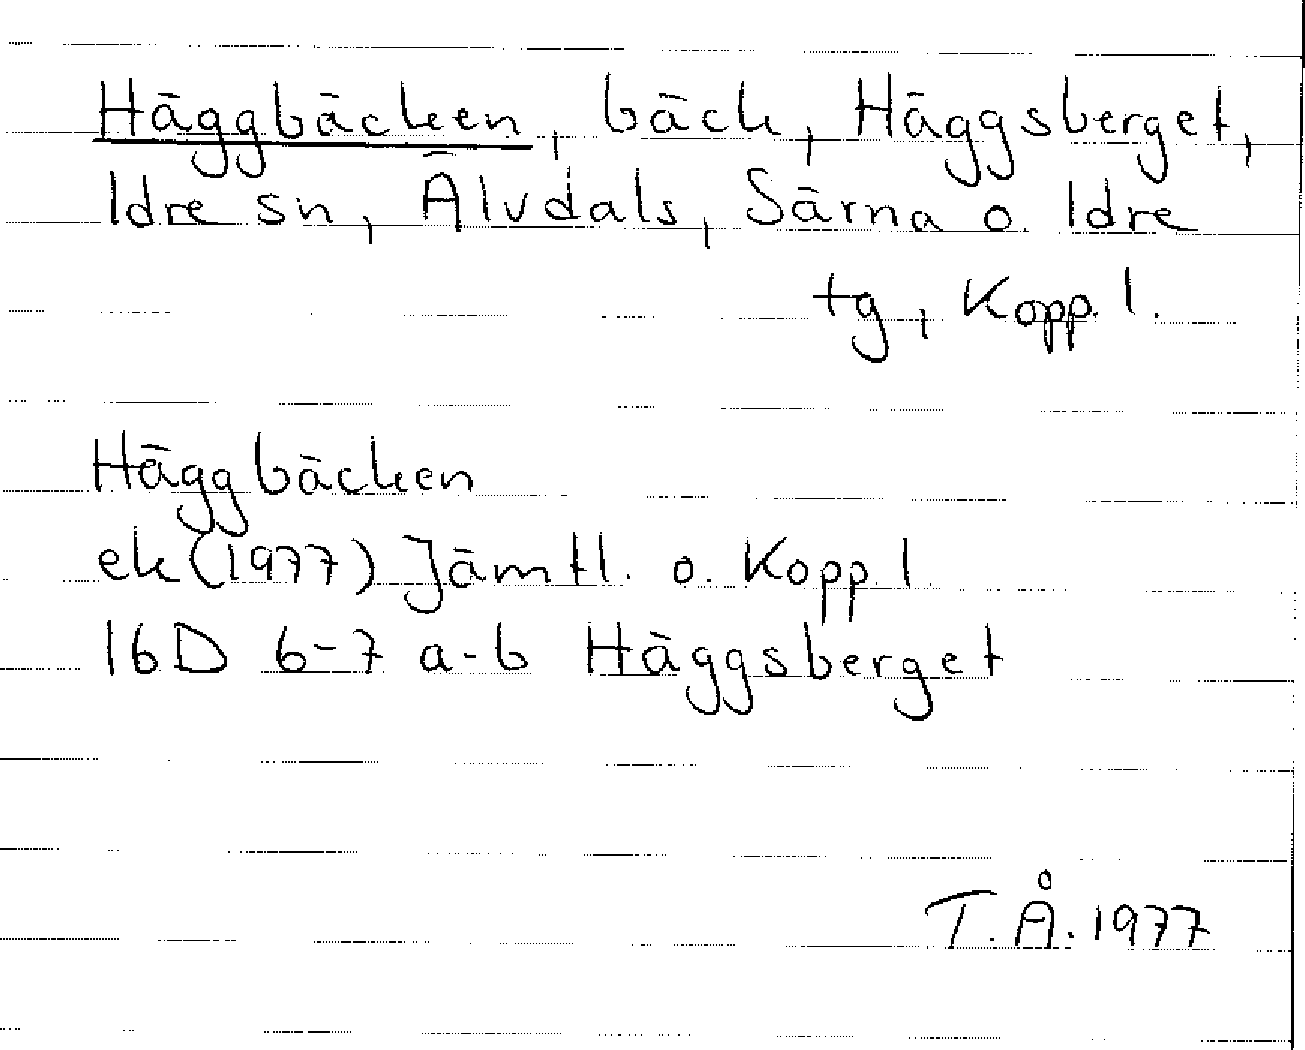 Häggbäcken, bäck, Häggsberget,
Idre sn, Älvdals, Särna o. Idre
tg, Kopp. l.
Häggbäcken
ek (1977) Jämtl. o. Kopp l
16D 6-7 a-b Häggsberget
T.Å. 1977